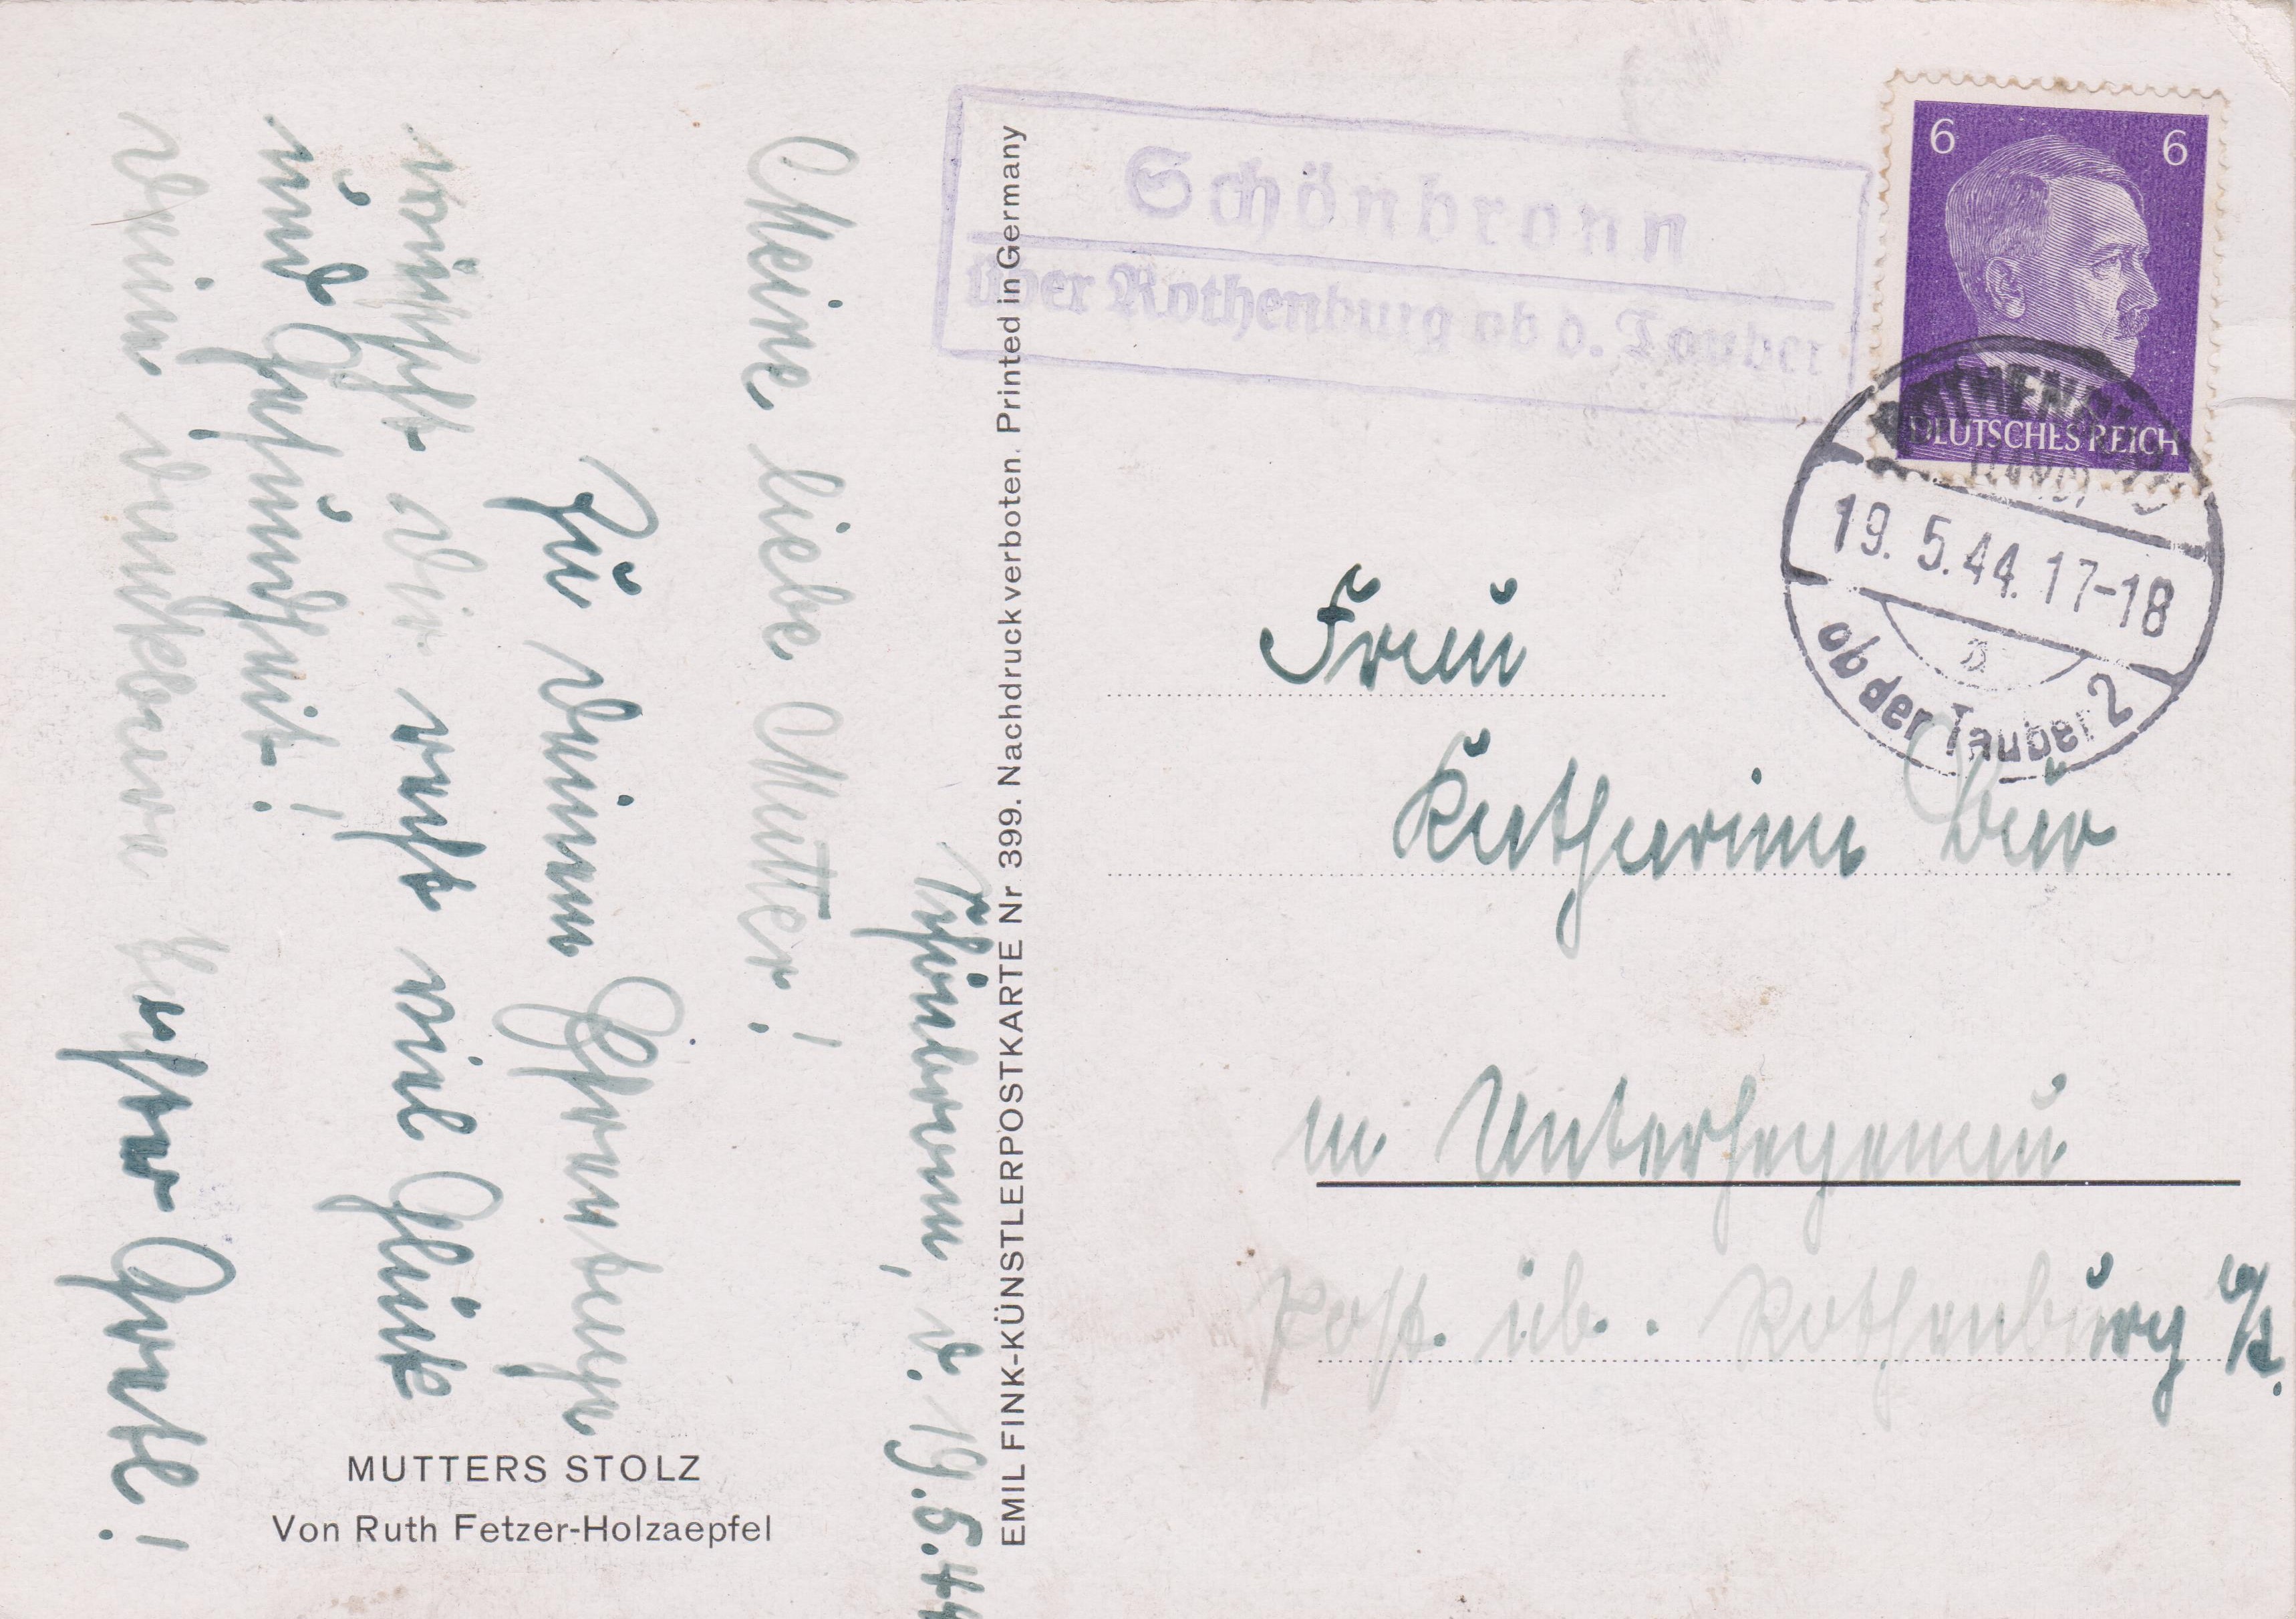 Schönbronn
über Rothenburg ob d. Tauber
6 6
DEUTSCHES REICH
ROTHENBURG
19.5.44.17-18
a
ob der Tauber 2
Schönbronn, d. 19.5.44
Meine liebe Mutter!
Zu deinem Ehrentage
wünscht dir recht viel Glück
und Gesundheit!
deine dankbare Tochter Gretl!
MUTTERS STOLZ
Von Ruth Fetzer-Holzaepfel
EMIL FINK-KÜNSTLERPOSTKARTE Nr 399. Nachdruck verboten. Printed in Germany
Frau
Katharina Baur
in Unterhegenau
Post üb. Rothenburg o/T.